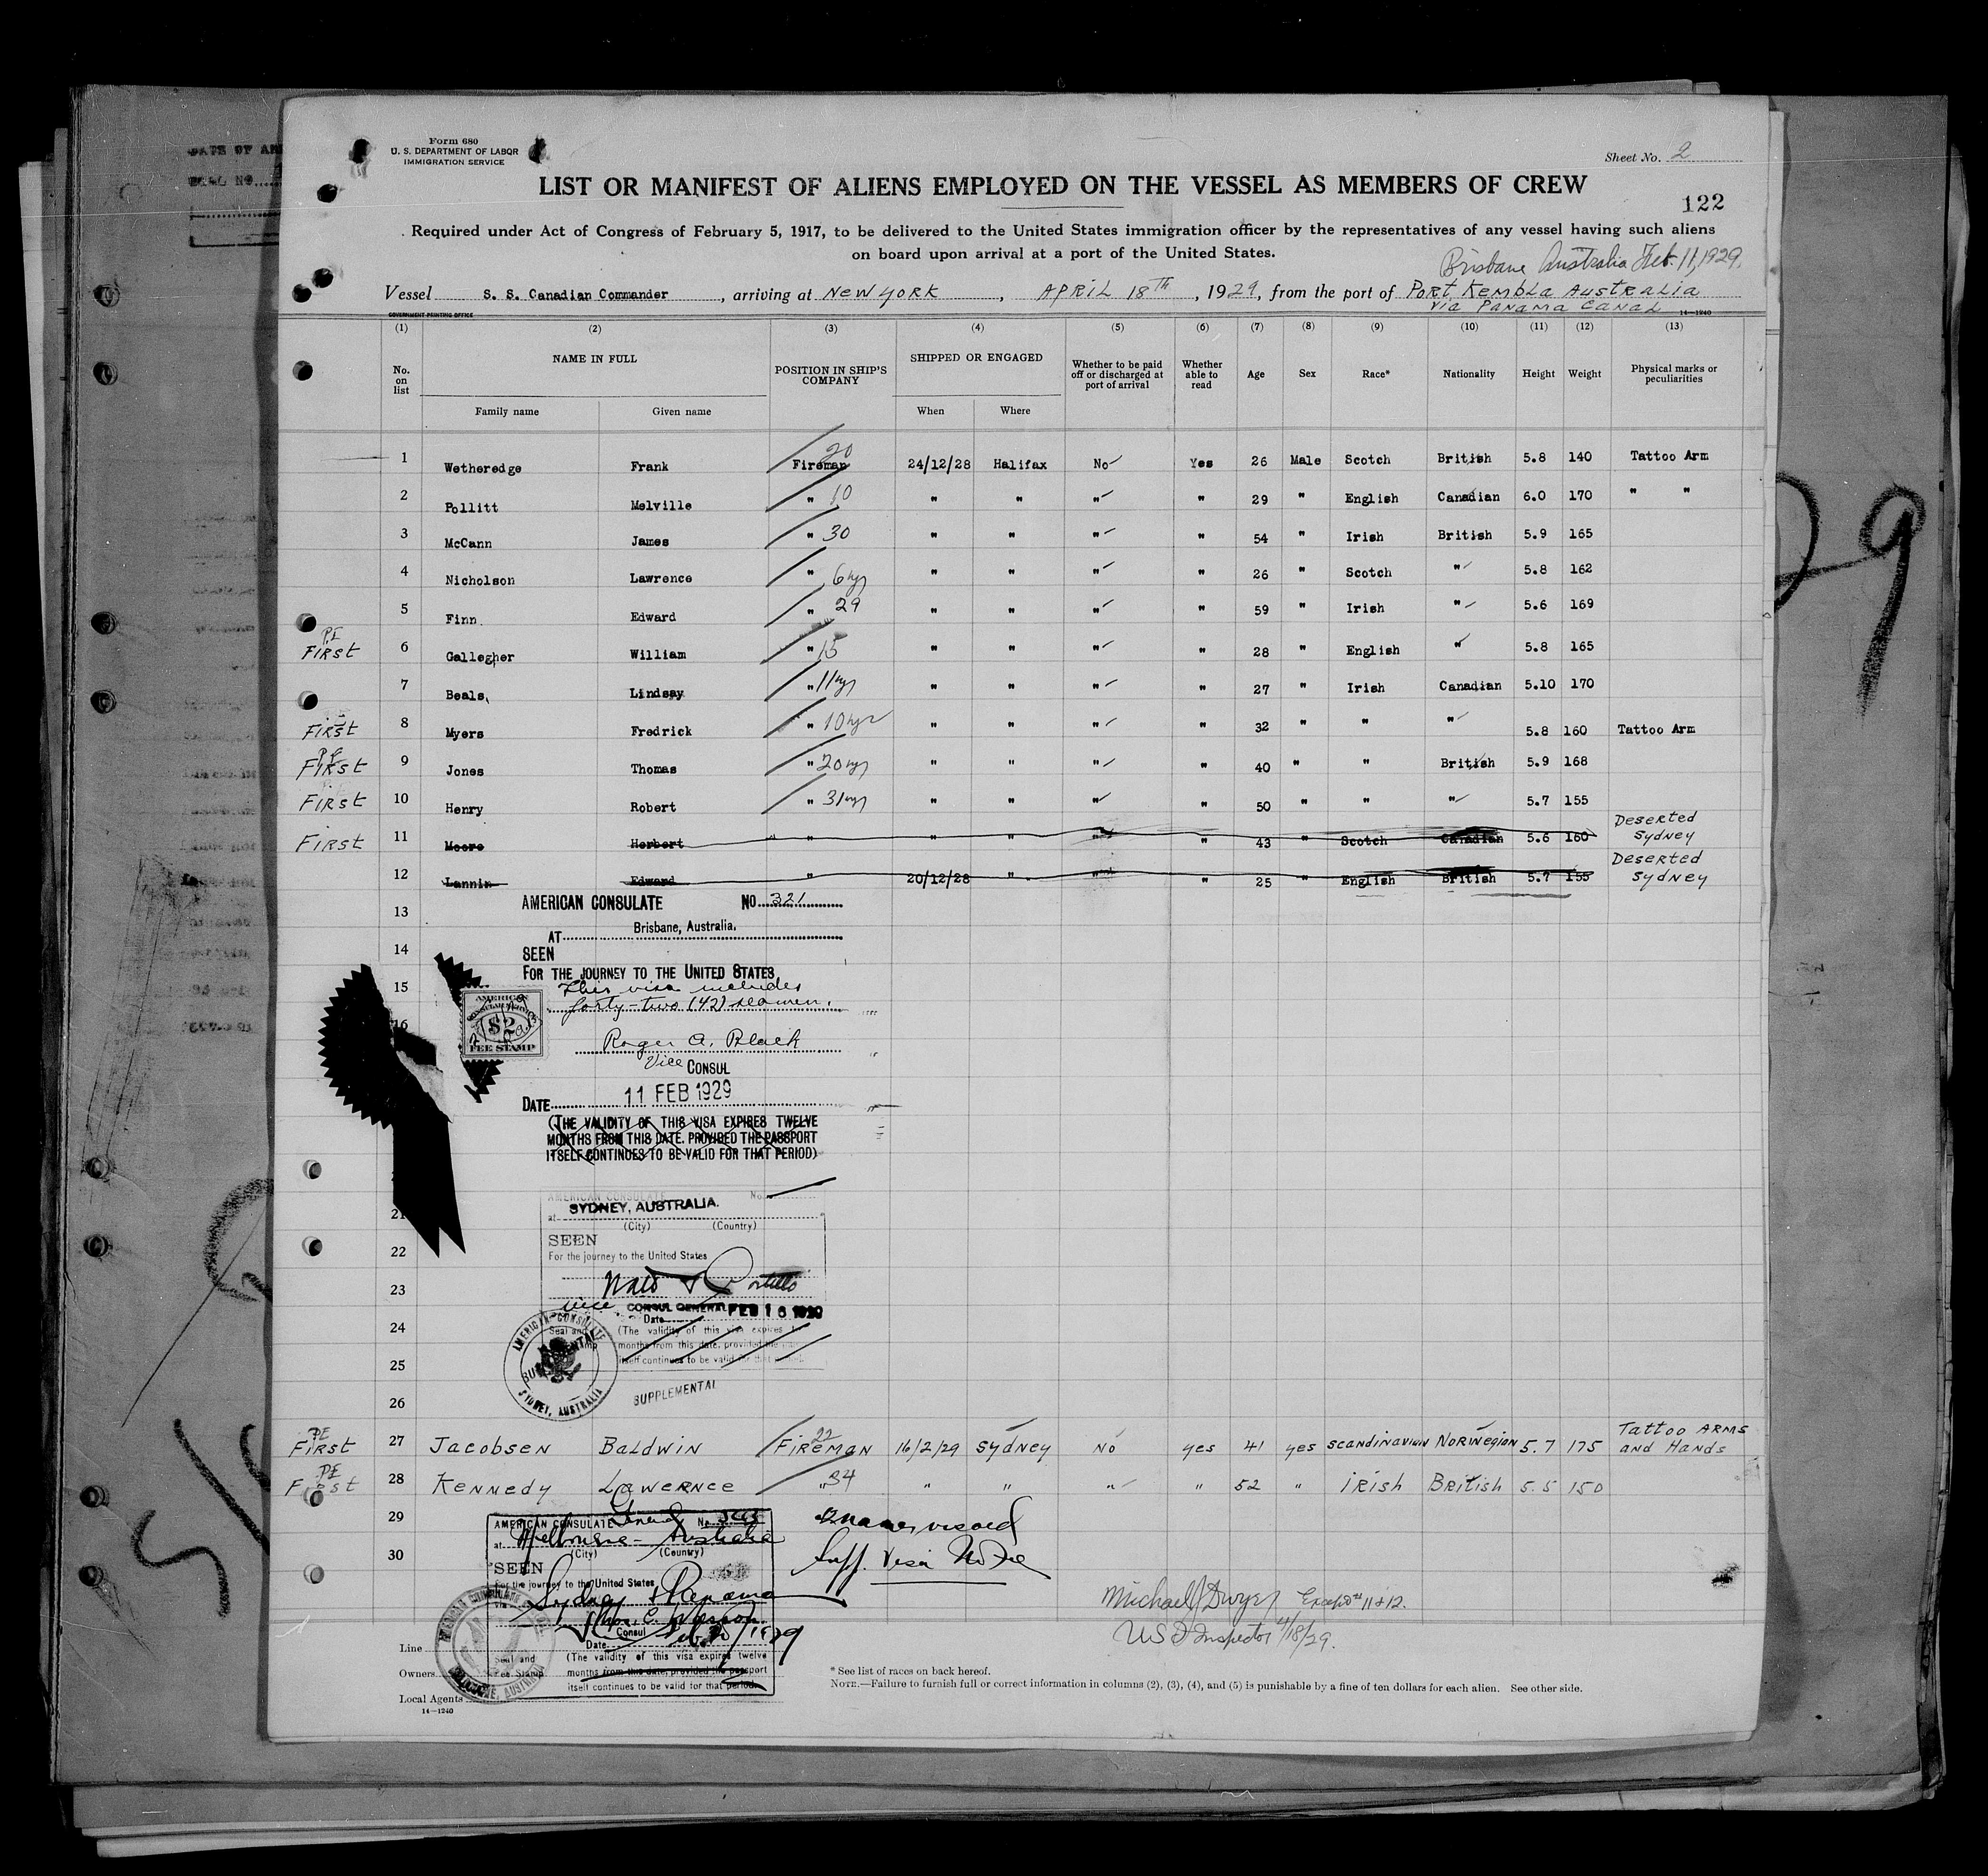 Form 680
U. S. DEPARTMENT OF LABOR
IMMIGRATION SERVICE
Sheet No. 2
LIST OR MANIFEST OF ALIENS EMPLOYED ON THE VESSEL AS MEMBERS OF CREW
122
Required under Act of Congress of February 5, 1917, to be delivered to the United States immigration officer by the representatives of any vessel having such aliens
on board upon arrival at a port of the United States.
Brisbane Australia Feb. 11, 1929.
Vessel S. S. Canadian Commander, arriving at NEW YORK, APRIL 18TH, 1929, from the port of PORT KEMBLA AUSTRALIA
VIA PANAMA CANAL
GOVERNMENT PRINTING OFFICE 14—1240
(1) (2) (3) (4) (5) (6) (7) (8) (9) (10) (11) (12) (13)
No. on list NAME IN FULL POSITION IN SHIP'S COMPANY SHIPPED OR ENGAGED Whether to be paid off or discharged at port of arrival Whether able to read Age Sex Race* Nationality Height Weight Physical marks or peculiarities
Family name Given name When Where
1 Wetheredge Frank Fireman 20 24/12/28 Halifax No Yes 26 Male Scotch British 5.8 140 Tattoo Arm
2 Pollitt Melville " 10 " " " " 29 " English Canadian 6.0 170 " "
3 McCann James " 30 " " " " 54 " Irish British 5.9 165
4 Nicholson Lawrence " 6 yrs " " " " 26 " Scotch " 5.8 162
5 Finn Edward " 29 " " " " 59 " Irish " 5.6 169
PI
First 6 Gallegher William " 15 " " " " 28 " English " 5.8 165
7 Beals, Lindsay " 11 yrs " " " " 27 " Irish Canadian 5.10 170
First 8 Myers Fredrick " 10 yrs " " " " 32 " " " 5.8 160 Tattoo Arm
First 9 Jones Thomas " 20 yrs " " " " 40 " " British 5.9 168
First 10 Henry Robert " 31 yrs " " " " 50 " " " 5.7 155
First 11 Moore Herbert " " " " " 43 " Scotch Canadian 5.6 160 Deserted Sydney
12 Lannin Edward " 20/12/28 " " " 25 " English British 5.7 155 Deserted Sydney
13
AMERICAN CONSULATE NO. 321
AT Brisbane, Australia.
14
SEEN
FOR THE JOURNEY TO THE UNITED STATES
15
This visa includes
forty-two (42) seamen.
16
AMERICAN
CONSULAR SERVICE
$2
FEE STAMP
Roger A. Black
Vice CONSUL
DATE 11 FEB 1929
(THE VALIDITY OF THIS VISA EXPIRES TWELVE
MONTHS FROM THIS DATE. PROVIDED THE PASSPORT
ITSELF CONTINUES TO BE VALID FOR THAT PERIOD)
AMERICAN CONSULATE No.
21
at SYDNEY, AUSTRALIA.
(City) (Country)
22
SEEN
For the journey to the United States
23
vice CONSUL GENERAL FEB 16 1929
Date
24
AMERICAN CONSULATE
SYDNEY, AUSTRALIA
SUPPLEMENTAL
Seal and
(The validity of this visa expires
months from this date, provided the
25
itself continues to be valid for that
26
SUPPLEMENTAL
PI
First 27 JACOBSEN BALDWIN FIREMAN 22 16/2/29 SYDNEY NO yes 41 yes SCANDINAVIAN NORWEGIAN 5.7 175 Tattoo ARMS and HANDS
PI
First 28 KENNEDY LAWERNCE " 34 " " " " 52 " IRISH BRITISH 5.5 150
29
30
AMERICAN CONSULATE General No.
at Melbourne - Australia
(City) (Country)
SEEN
For the journey to the United States
via Sydney & Panama
Consul
Date
Seal and
Fee Stamp
(The validity of this visa expires twelve
months from this date, provided the passport
itself continues to be valid for that period.
2 names visaed
Supp. Visa No Fee
Michael J Dwyer Except # 11 & 12.
US I Inspector 4/18/29.
Line
Owners
Local Agents
14—1240
* See list of races on back hereof.
NOTE.—Failure to furnish full or correct information in columns (2), (3), (4), and (5) is punishable by a fine of ten dollars for each alien. See other side.